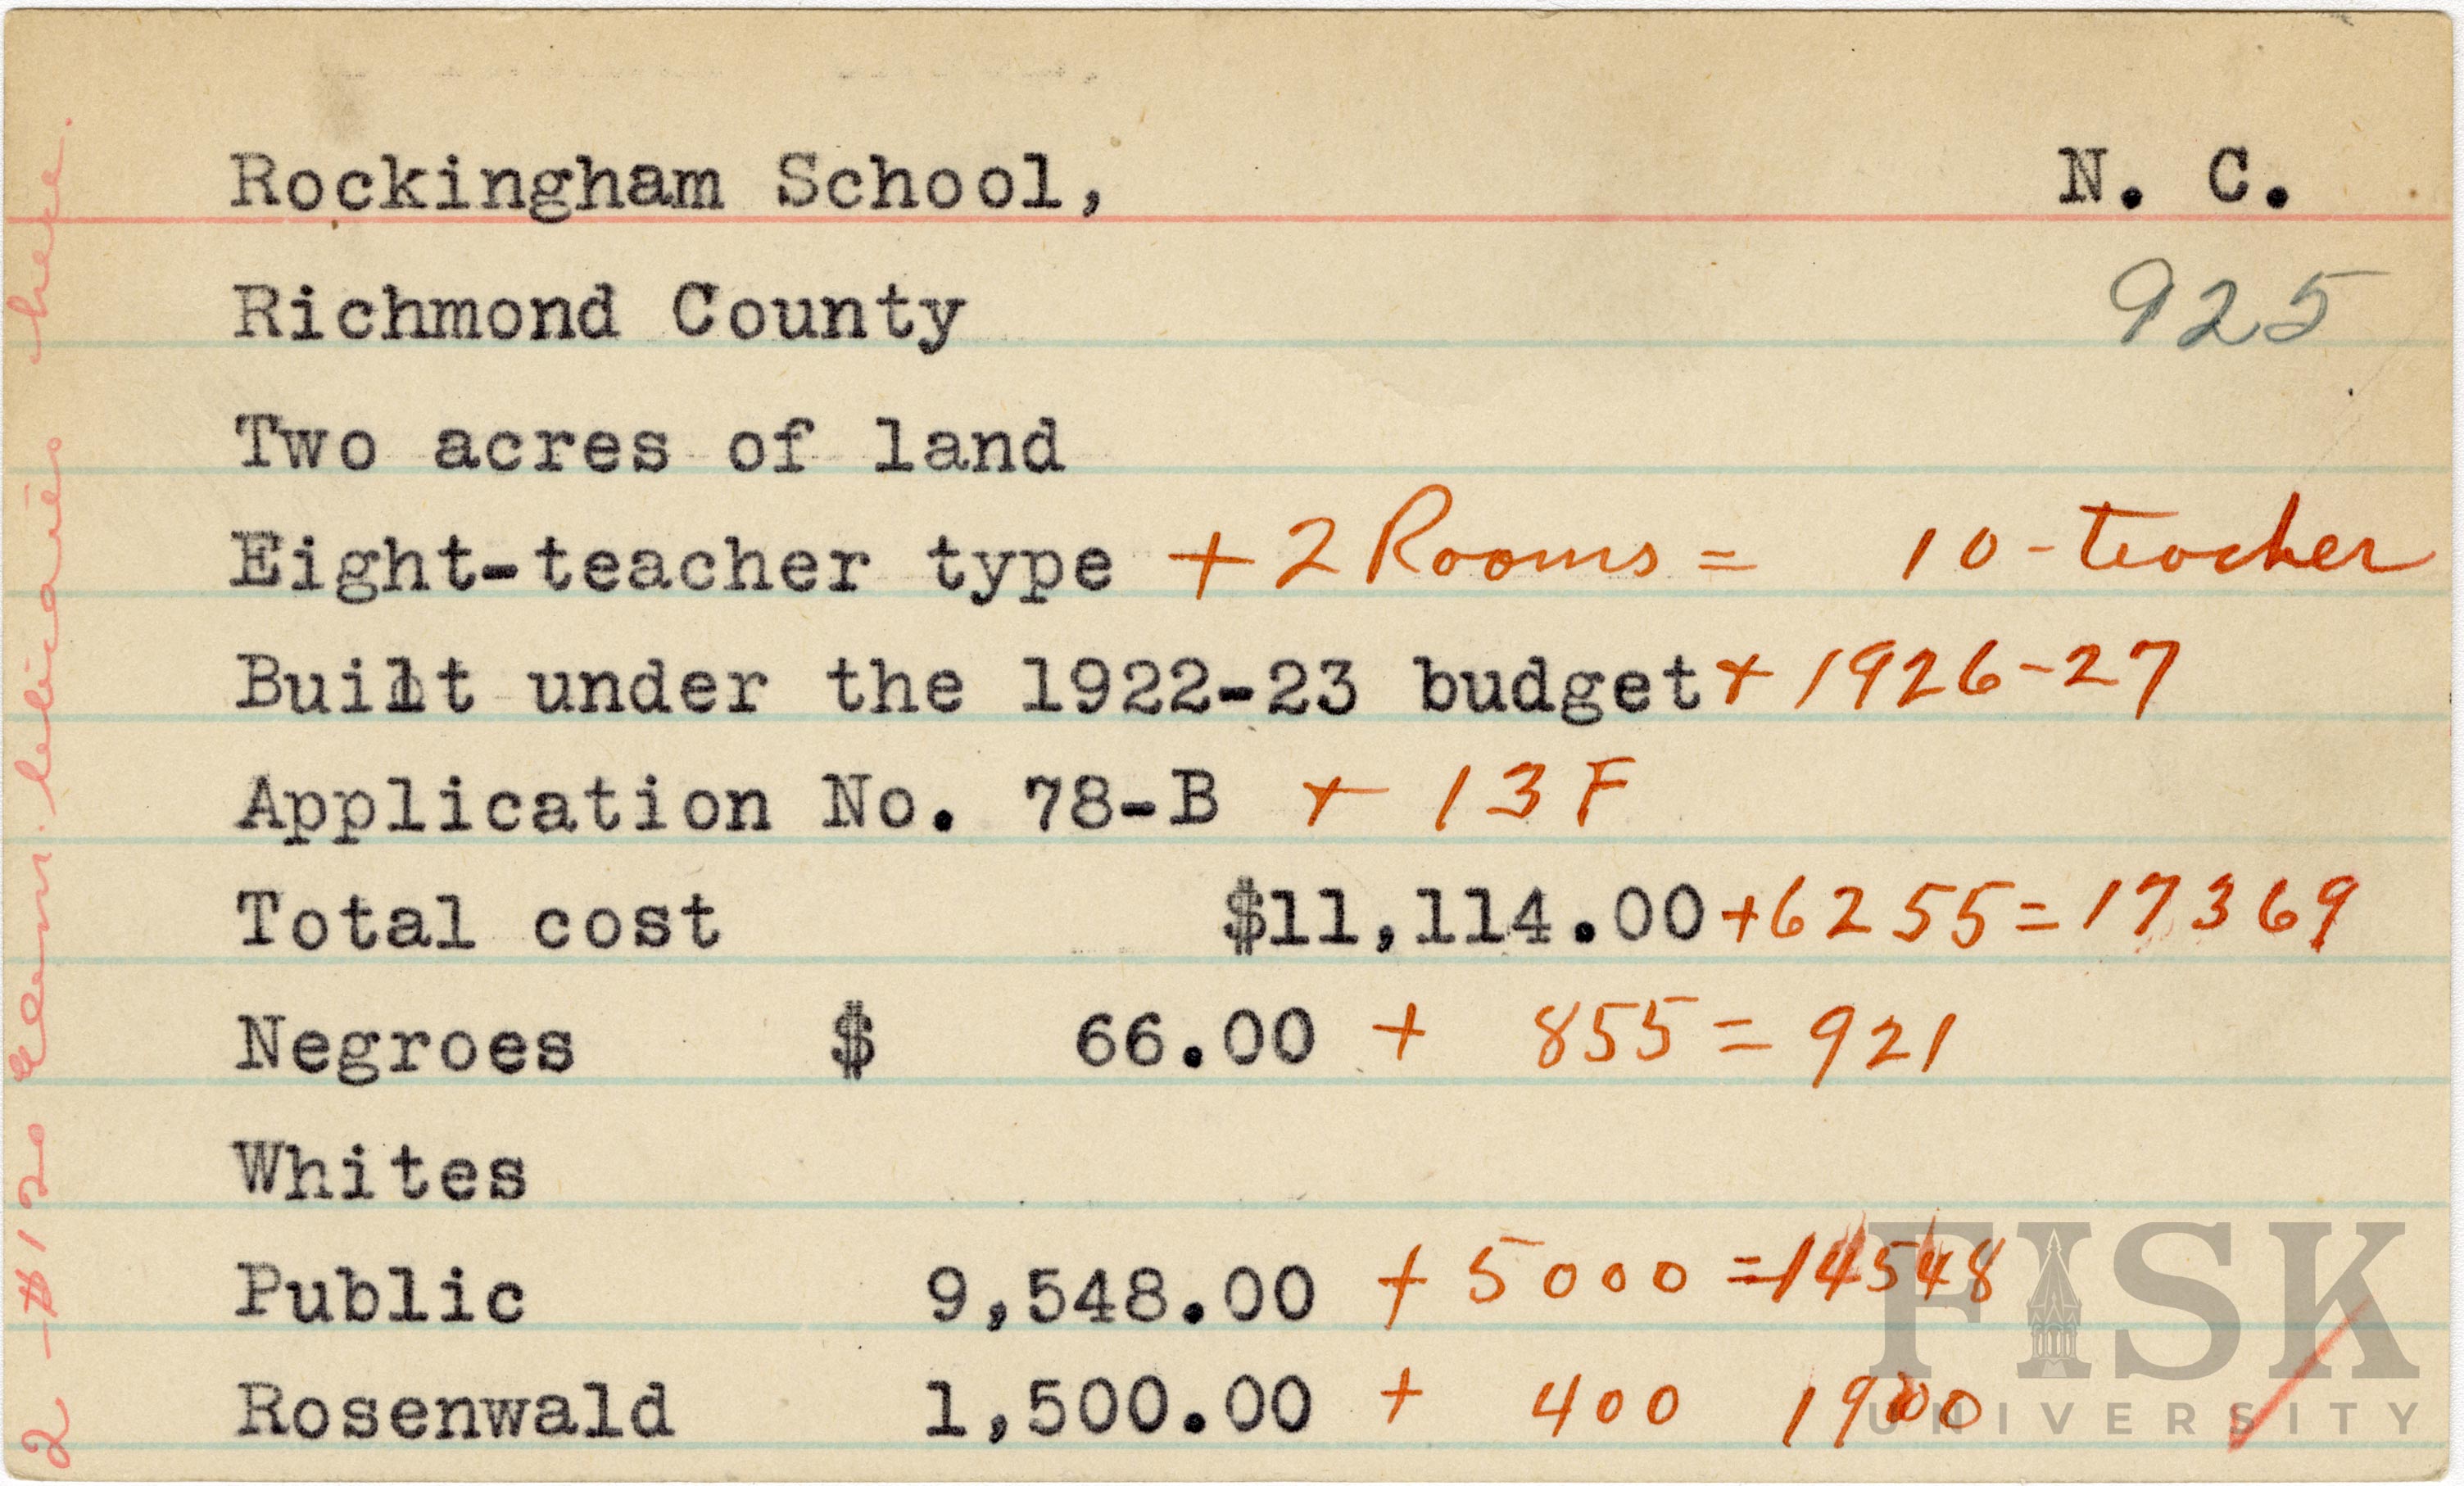 Rockingham School, N. C.
Richmond County 925
Two acres of land
Eight-teacher type + 2 Rooms = 10-teacher
Built under the 1922-23 budget + 1926-27
Application No. 78-B + 13 F
Total cost $11,114.00 + 6255 = 17369
Negroes $ 66.00 + 855 = 921
Whites
Public 9,548.00 + 5000 = 14548
Rosenwald 1,500.00 + 400 1900
2 - $120 Elem. libraries here.
FISK
UNIVERSITY